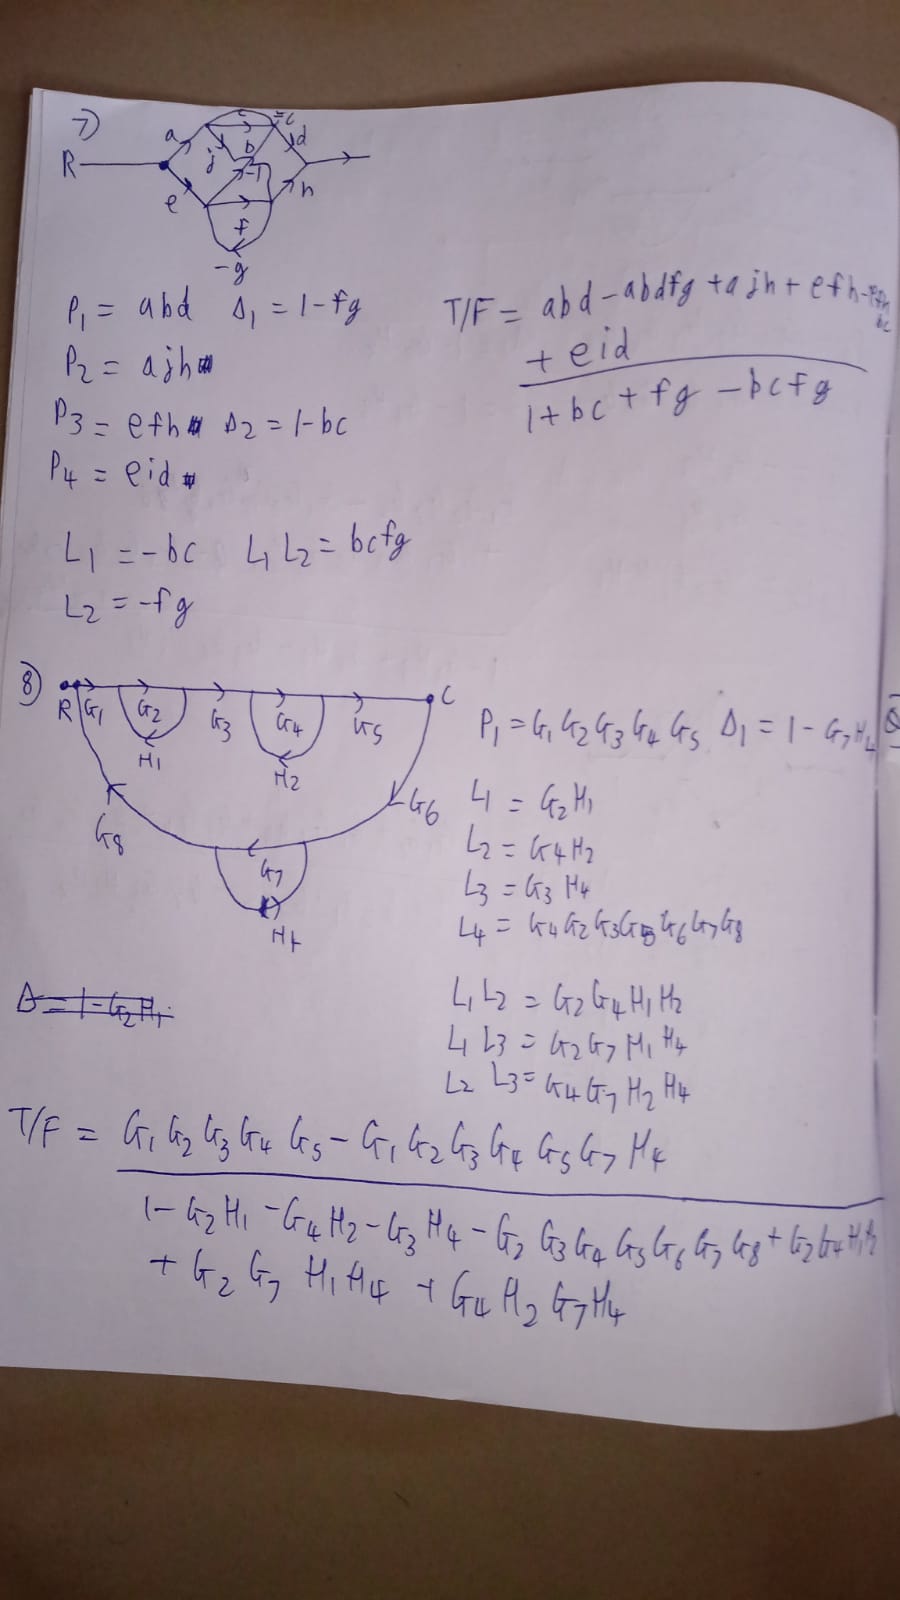 7)
a
c
-c
d
R
j
b
-1
e
h
f
-g
P1 = abd Δ1 = 1-fg
P2 = ajh
P3 = efh Δ2 = 1-bc
P4 = eid
T/F = abd - abdfg + ajh + efh - efh bc
+ eid
1 + bc + fg - bcfg
L1 = -bc L1 L2 = bcfg
L2 = -fg
8)
R G1 G2 G3 G4 G5 C
H1 H2
G8 G7 G6
H4
P1 = G1 G2 G3 G4 G5 Δ1 = 1 - G7 H4
L1 = G2H1
L2 = G4H2
L3 = G3 H4
L4 = G4G2G3G5G6G7G8
Δ = 1 - G2H1
L1 L2 = G2G4H1H2
L1 L3 = G2G7H1H4
L2 L3 = G4G7H2H4
T/F = G1 G2 G3 G4 G5 - G1 G2 G3 G4 G5 G7 H4
1 - G2H1 - G4H2 - G3H4 - G2 G3 G4 G5 G6 G7 G8 + G2G4H1H2
+ G2 G7 H1H4 + G4 H2 G7H4